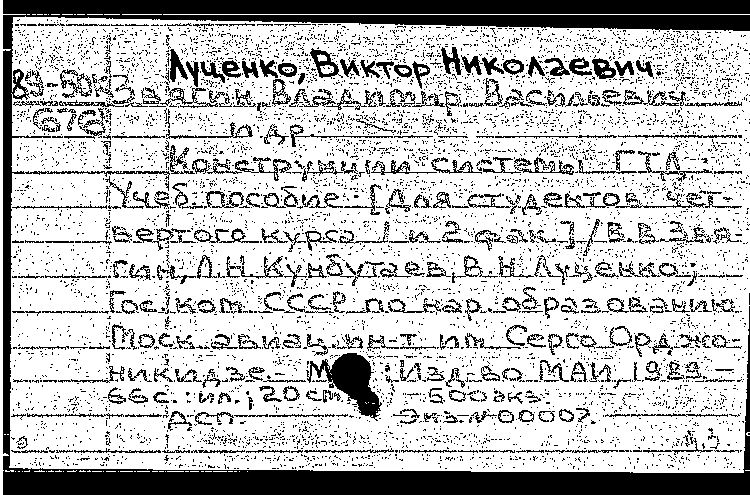 Луценко, Виктор Николаевич.
89-50К Звягин, Владимир Васильевич
672 и др.
Конструкции системы ГТД :
Учеб. пособие : [Для студентов чет-
вертого курса 1 и 2 фак.] / В.В. Звя-
гин, Л.Н. Кунбутаев, В.Н. Луценко ;
Гос. ком. СССР по нар. образованию
Моск. авиац. ин-т им. Серго Орджо-
никидзе. - М : Изд-во МАИ, 1989 -
66 с. : ил. ; 20 см. - 600 экз.
ДСП. Экз. № 00007.